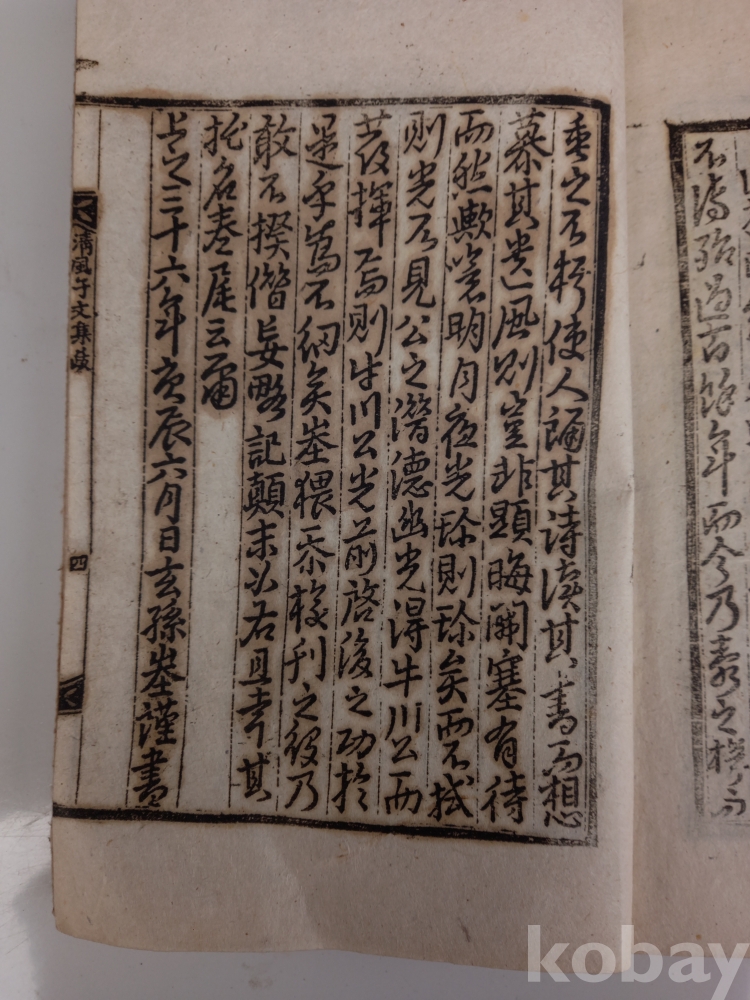 不傳殆過百餘年而今乃壽之梓而
垂之不朽使人誦其詩讀其書而想
慕其遺風則豈非顯晦開塞有待
而然歟噫明月夜光珍則珍矣而不拭
則光不見公之潛德幽光得牛川公而
發揮焉則牛川公光前啓後之功於
是乎爲不細矣猥忝校刊之役乃
敢不揆僭妄略記顚末如右且幸其
托名卷尾云爾
上之三十六年庚辰六月日玄孫謹書
淸風子文集跋
四
kobay